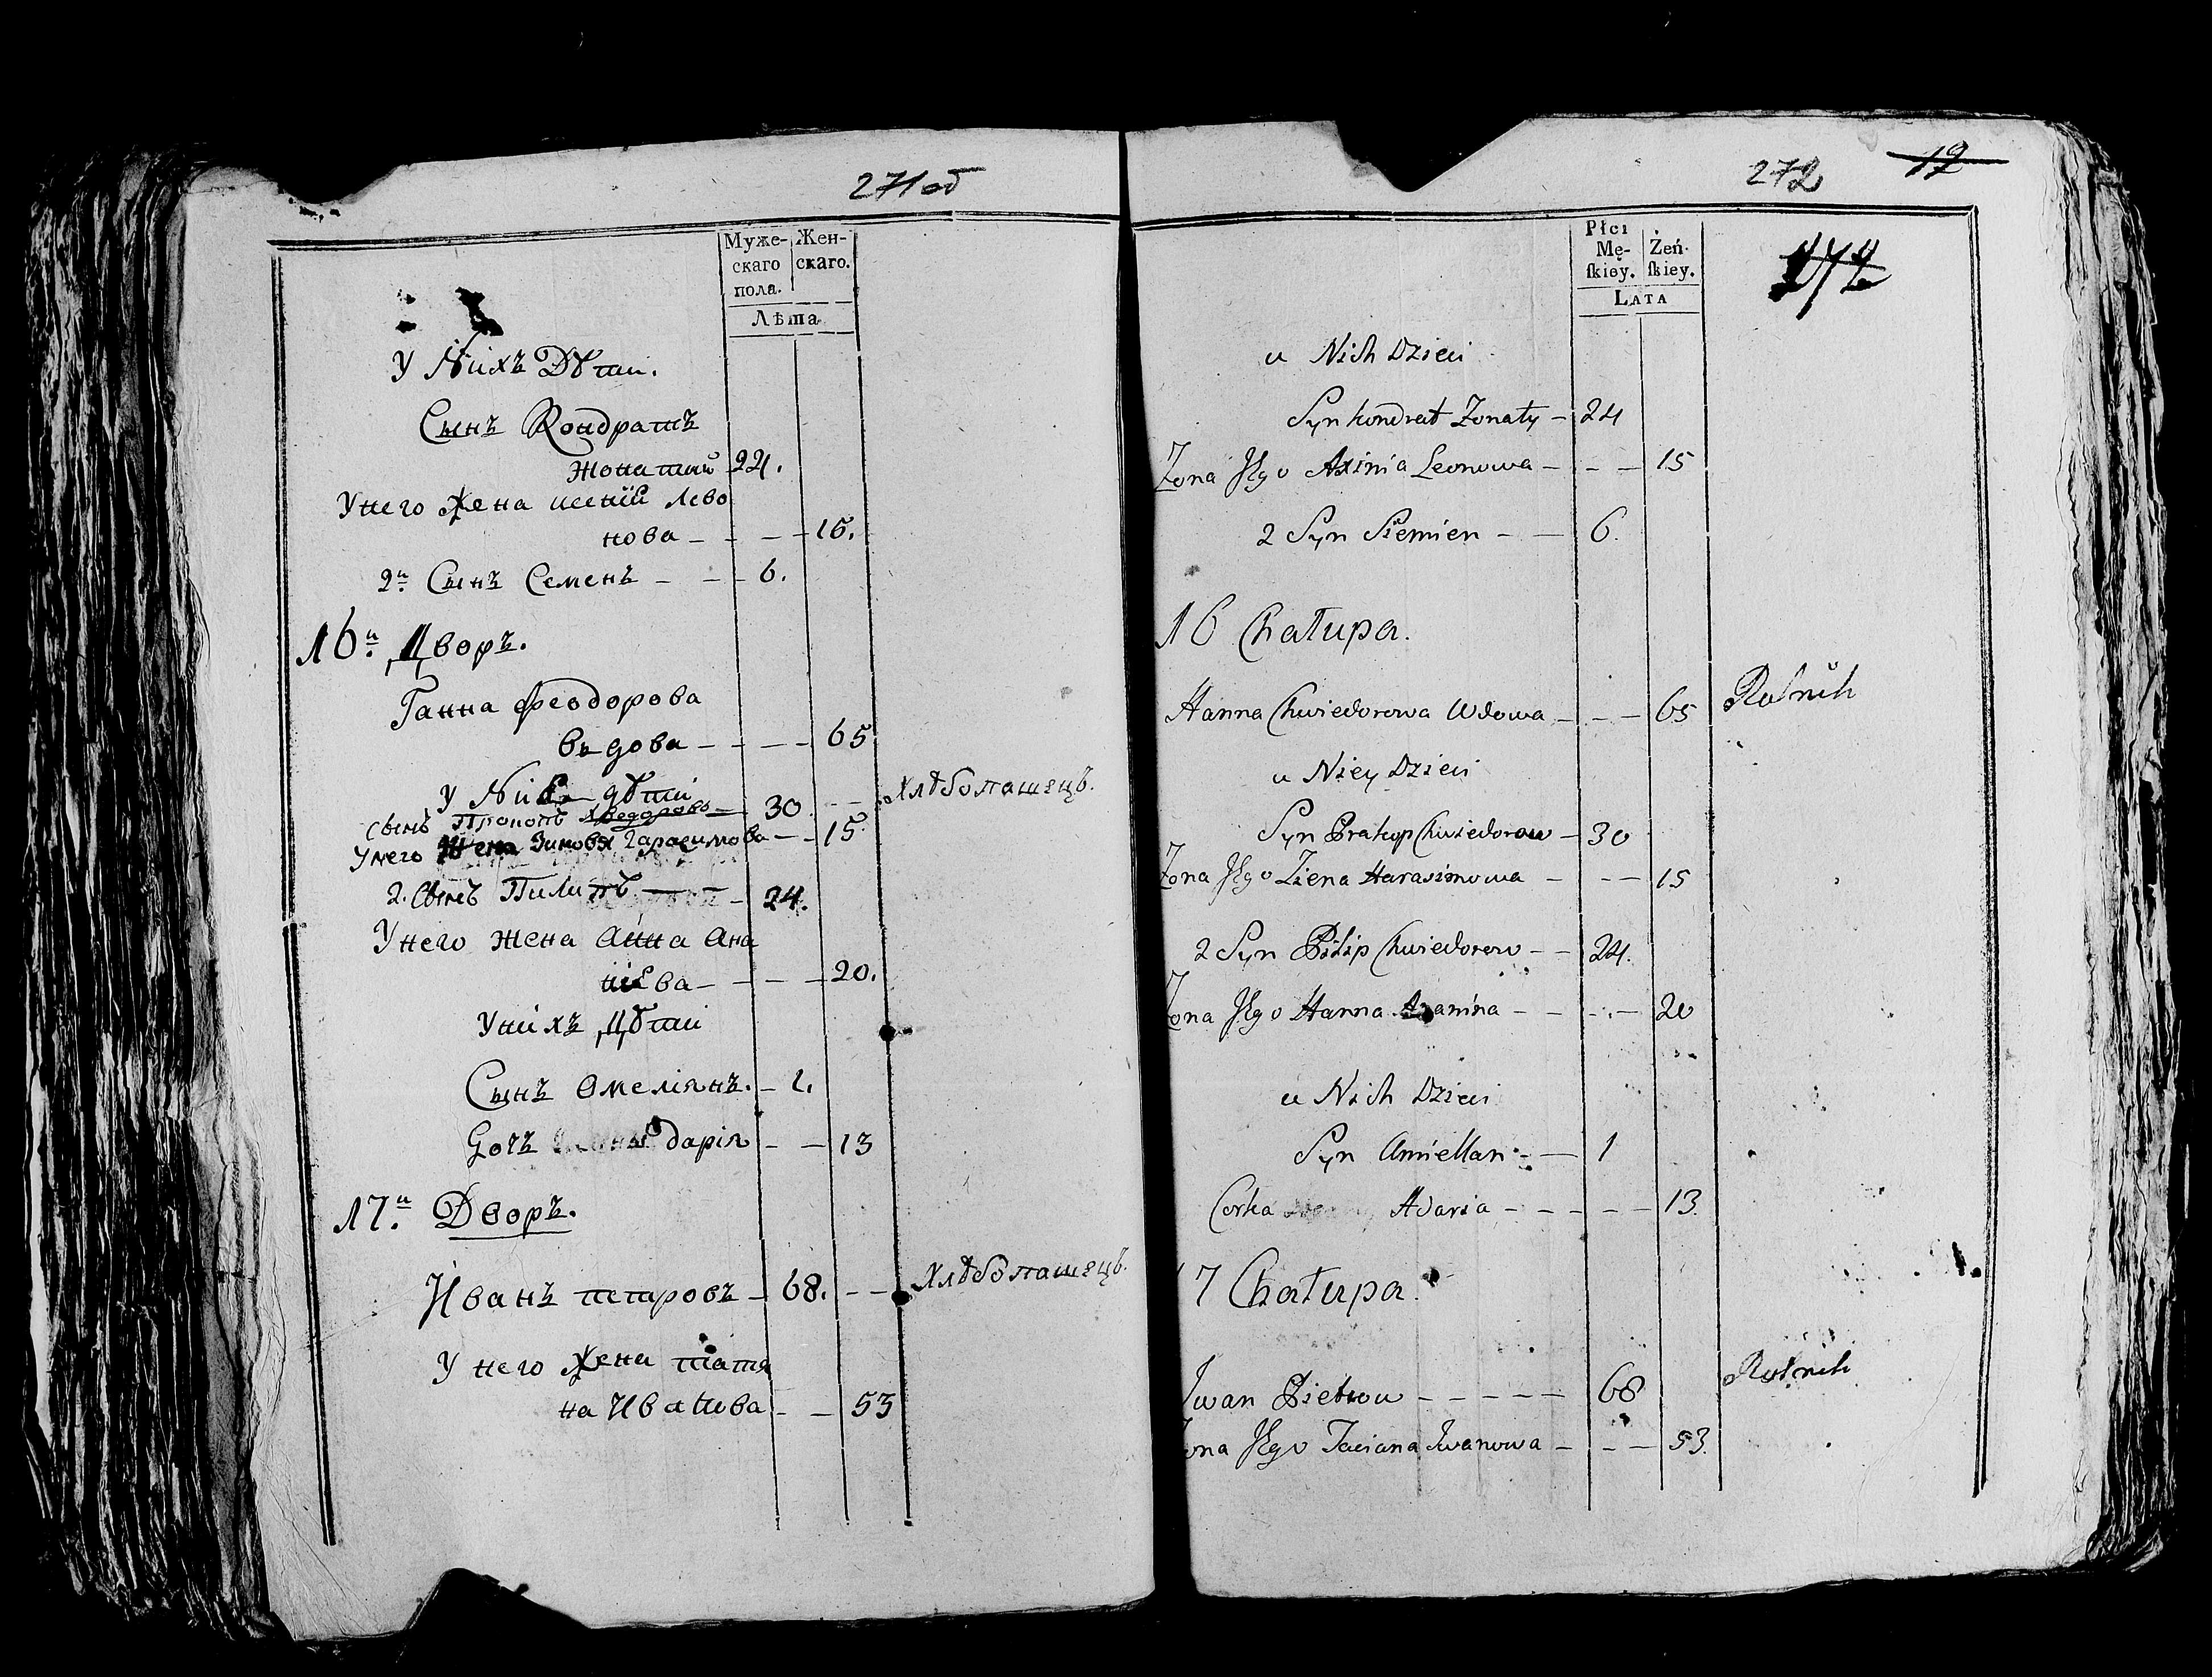 271об
Муже- Жен-
скаго скаго.
пола.
Лѣта
У Нихъ Дѣти.
Сынъ Кондратъ
Жонатий 24.
У него Жена ксенія Лево
нова - - - - 15.
2й Сынъ Семенъ - - - 6.
16й Дворъ.
Ганна Феодорова
Въдова - - - - 65
У Ней дѣти
Сынъ Прокопъ Хведоровъ - 30 - - Хлѣбопашецъ.
У него Жена Зиновя Гарасимова - - 15.
2. Сынъ Пилипъ - - - 24.
У него Жена Анна Ана
ніева - - - - 20.
У нихъ Дѣти
Сынъ Омеліянъ. - 1.
Дочъ дарія - - 13
17й Дворъ.
Иванъ петровъ - 68. - - Хлѣбопашецъ.
У него Жена татя
на Иванова - - 53
272 12
Płci
Mę- Żeń-
ſkiey. ſkiey.
LATA
u Nich Dzieci
Syn kondrat Zonaty - 24
Zona Jego Axinia Leonowa - - - 15
2 Syn Siemien - - 6.
16 Chałupa.
Hanna Chwiedorowa Wdowa - - - 65 Rolnik
u Niey Dzieci
Syn Prakop Chwiedorow - 30
Zona Jego Ziena Harasimowa - - - 15
2 Syn Pilip Chwiedorow - - 24.
Zona Jego Hanna Ananina - - - - 20
u Nich Dzieci
Syn Amiellan - - 1
Corka Adaria - - - - - 13.
17 Chałupa.
Jwan Pietrow - - - - - 68 Rolnik
Zona Jego Taciana Jwanowa - - - 53.